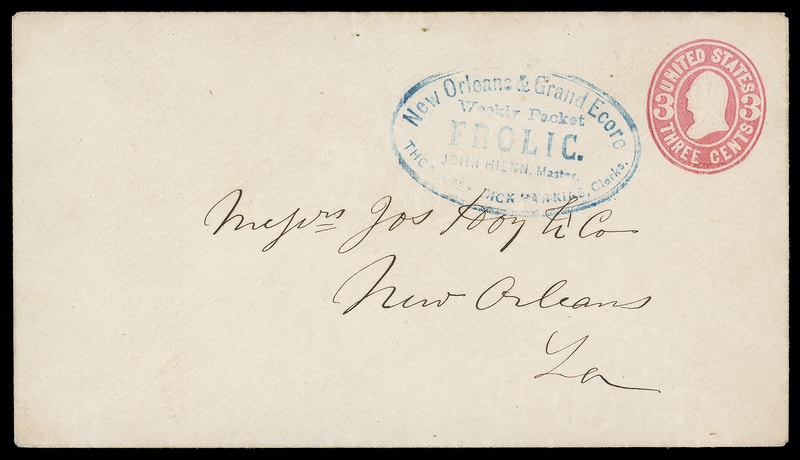 New Orleans & Grand Ecore
Weekly Packet
FROLIC.
JOHN HIENN, Master,
THOS. DICK HAWKINS, Clerks.
UNITED STATES
3 3
THREE CENTS
Messrs Jos Hoy & Co
New Orleans
La